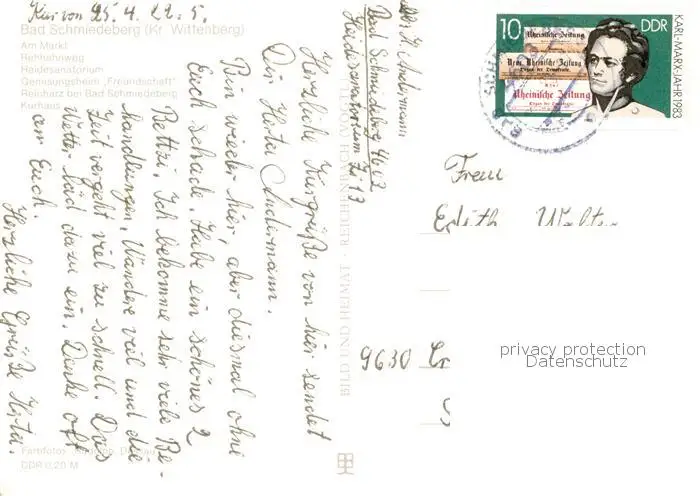 Kur von 25. 4. 22. 5.
Bad Schmiedeberg (Kr. Wittenberg)
Am Markt
Rehhahnweg
Heidesanatorium
Genesungsheim „Freundschaft"
Reinharz bei Bad Schmiedeberg
Kurhaus
Herzliche Kurgrüße von hier sendet
Dir Herta Andermann.
Bin wieder hier, aber diesmal ohne
Euch schade. Habe ein schönes 2
Bettzi. Ich bekomme sehr viele Be-
handlungen, Wandere viel und die
Zeit vergeht viel zu schnell. Das
Wetter läd dazu ein. Denke oft
an Euch.
Herzliche Grüße Herta.
DDR 0,20 M
BILD UND HEIMAT · REICHENBACH
Bad Schmiedeberg 4602
Heidesanatorium Zi 13
10
DDR
KARL-MARX-JAHR 1983
Rheinische Zeitung
Neue Rheinische Zeitung
Organ der Demokratie.
Rheinische Zeitung
Organ der Demokratie.
Frau
Edith Walter
9630
privacy protection
Datenschutz